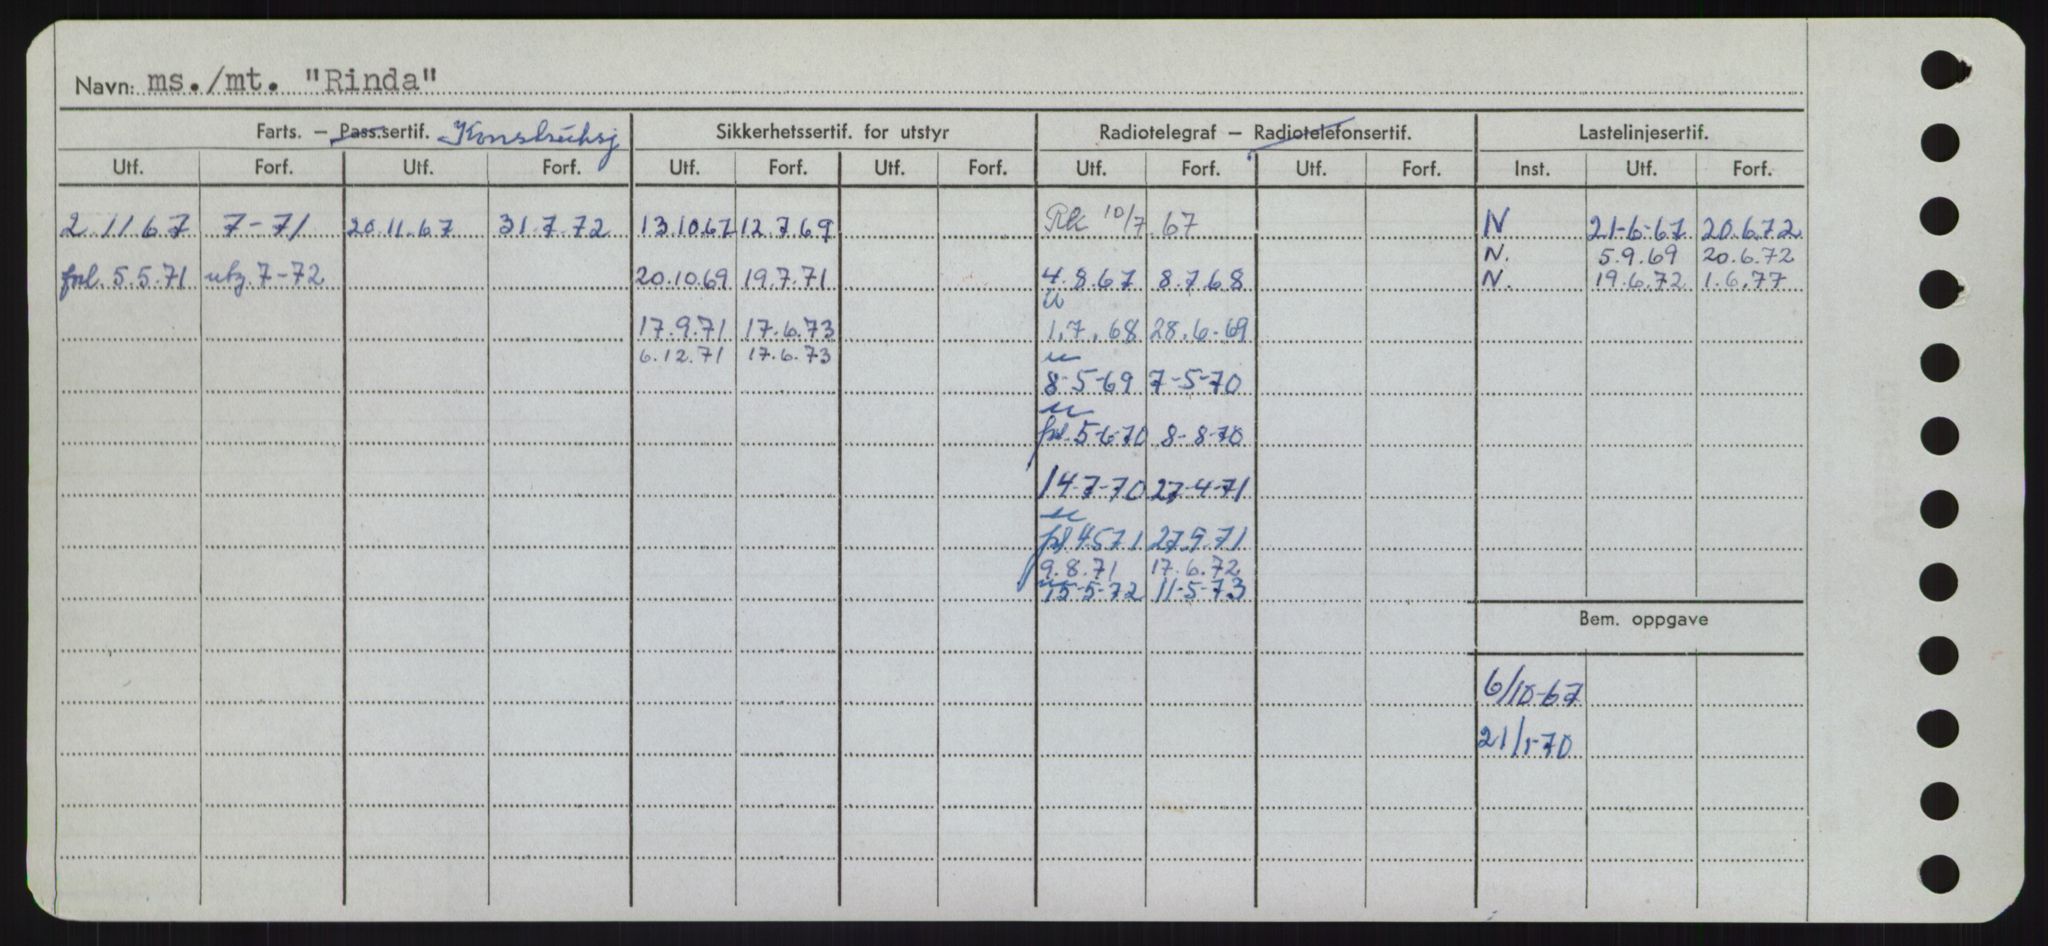 Navn: ms./mt. "Rinda"
Farts. – Pass.sertif. Konstruksj Sikkerhetssertif. for utstyr Radiotelegraf – Radiotelefonsertif. Lastelinjesertif.
Utf. Forf. Utf. Forf. Utf. Forf. Utf. Forf. Utf. Forf. Utf. Forf. Inst. Utf. Forf.
2.11.67 7-71 20.11.67 31.7.72 13.10.67 12.7.69 10/7.67 N 21-6-67 20.6.72
N. 5.9.69 20.6.72
fnl. 5.5.71 utg. 7-72 20.10.69 19.7.71 4.8.67 8.7.68 N. 19.6.72 1.6.77
17.9.71 17.6.73 1.7.68 28.6-69
6.12.71 17.6.73
8-5-69 7-5-70
fnl. 5-6-70 8-8-70
14-7-70 27-4-71
fnl 4.5.71 27.9.71
9.8.71 17.6.72
15-5-72 11-5-73
Bem. oppgave
6/10-67
21/1-70